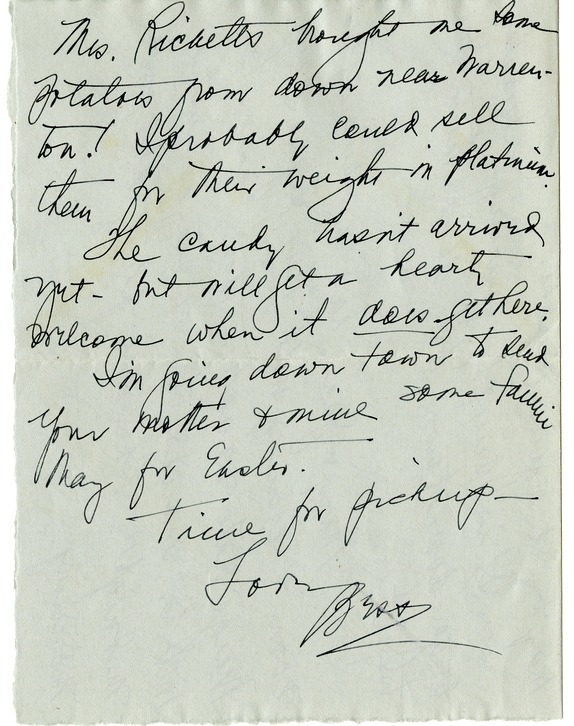 Mrs. Ricketts bought me some
potatoes from down near Warren-
ton! I probably could sell
them for their weight in platinum.
The candy hasn't arrived
yet - but will get a hearty
welcome when it does get here.
I'm going down town to send
your mother & mine some Fannie
May for Easter.
Time for pickup -
Love
Bess